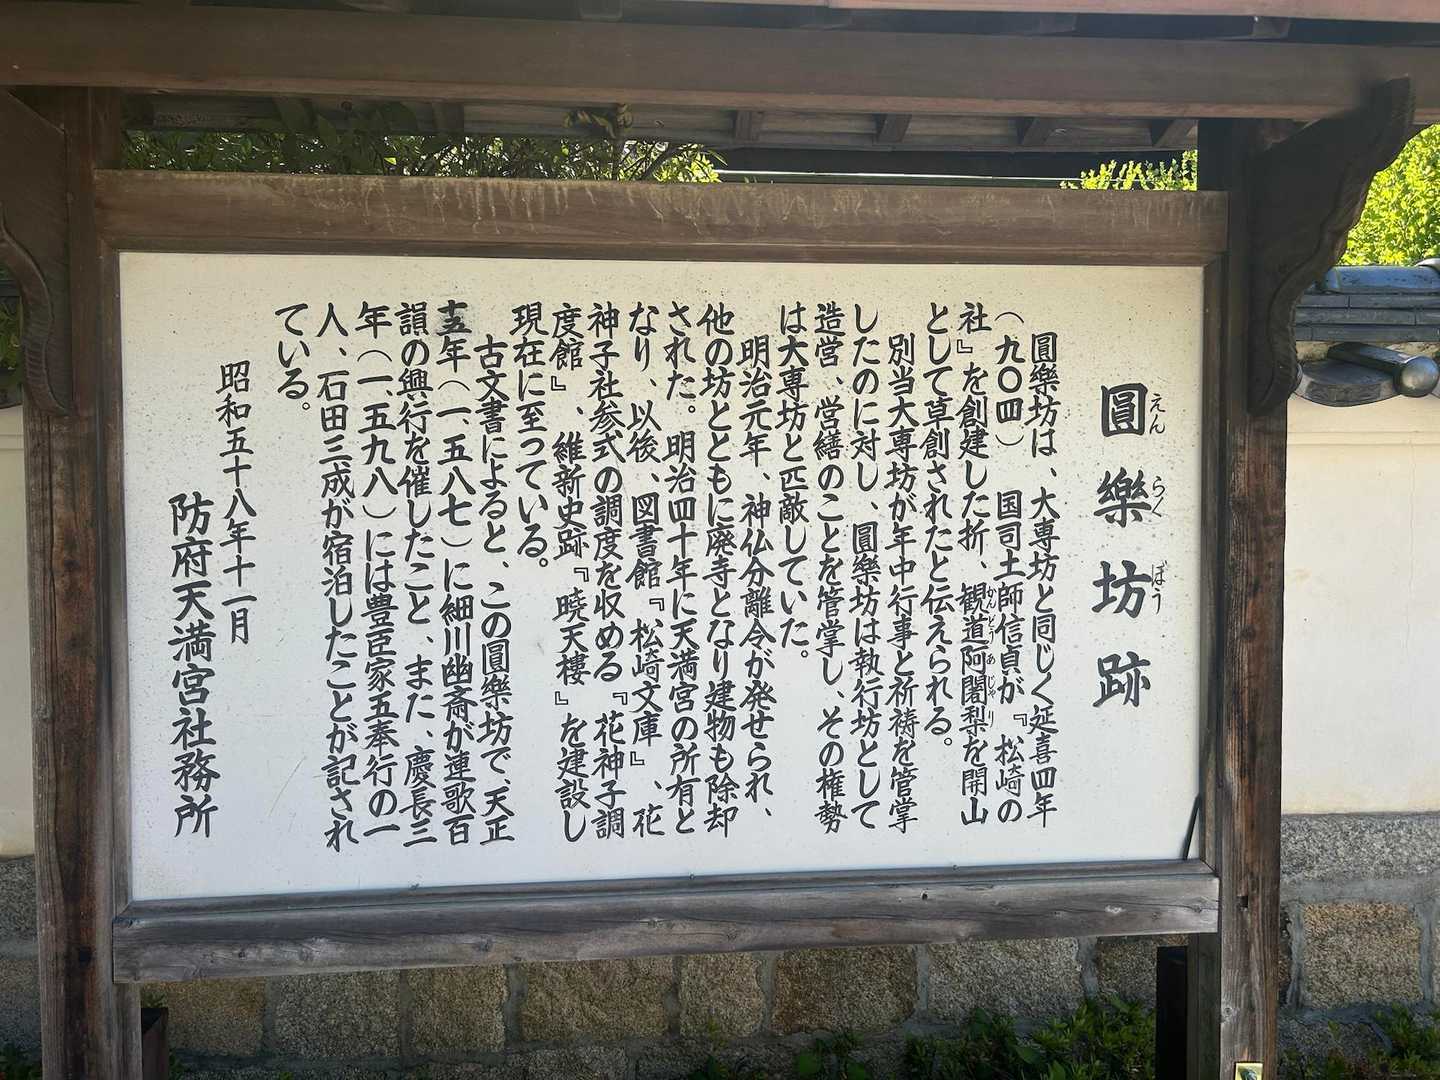 圓樂坊跡
えん らく ぼう
圓樂坊は、大専坊と同じく延喜四年
（九〇四）　国司土師信貞が『松崎の
社』を創建した折、観道阿闍梨を開山
かんどうあじゃり
として草創されたと伝えられる。
別当大専坊が年中行事と祈祷を管掌
したのに対し、圓樂坊は執行坊として
造営、営繕のことを管掌し、その権勢
は大専坊と匹敵していた。
明治元年、神仏分離令が発せられ、
他の坊とともに廃寺となり建物も除却
された。明治四十年に天満宮の所有と
なり、以後、図書館『松崎文庫』、花
神子社参式の調度を収める『花神子調
度館』、維新史跡『暁天樓』を建設し
現在に至っている。
古文書によると、この圓樂坊で、天正
十五年（一、五八七）に細川幽斎が連歌百
韻の興行を催したこと、また、慶長三
年（一、五九八）には豊臣家五奉行の一
人、石田三成が宿泊したことが記され
ている。
昭和五十八年十一月
防府天満宮社務所